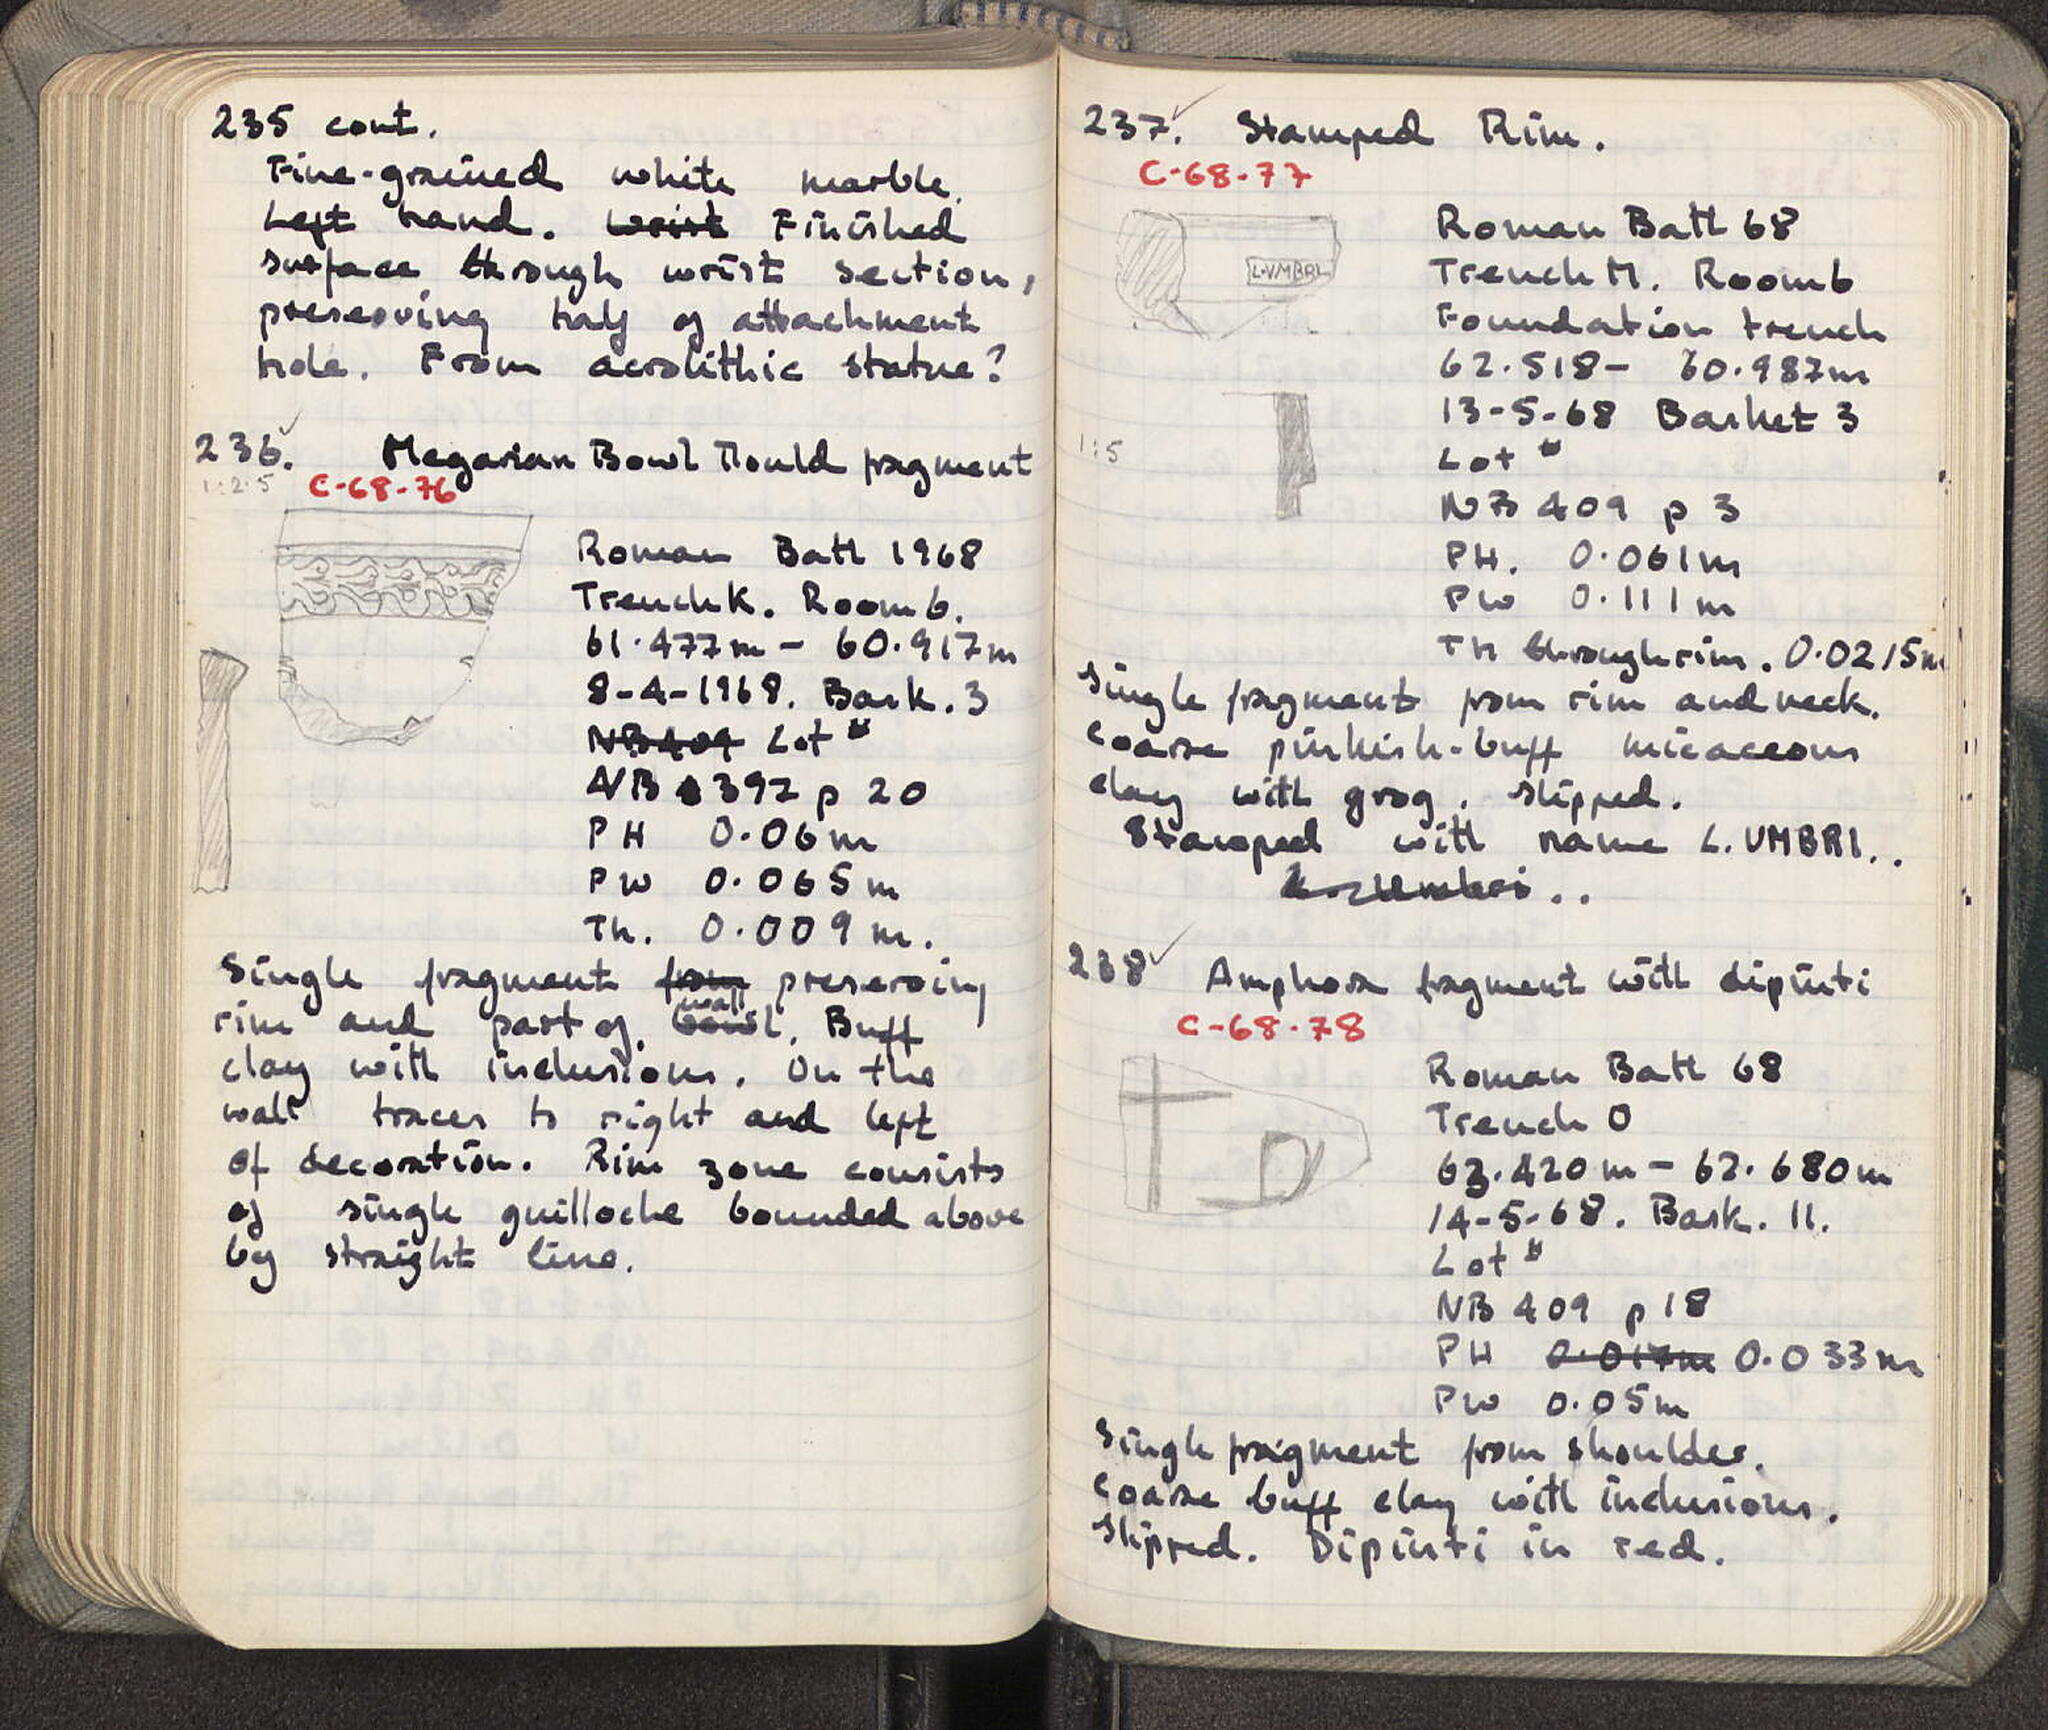 235 cont.
Fine-grained white marble.
Left hand. wrist Finished
surface through wrist section,
preserving half of attachment
hole. From acrolithic statue?
236. Megarian Bowl Mould fragment
1:2.5 C-68-76
Roman Bath 1968
Trench K. Room 6.
61.477m - 60.917m
8-4-1968. Bask. 3
NB 409 Lot #
NB 392 p 20
PH 0.06m
PW 0.065m
Th. 0.009m.
Single fragment from preserving
rim and part of bowl wall. Buff
clay with inclusions. On the
wall traces to right and left
of decoration. Rim zone consists
of single guilloche bounded above
by straight line.
237. Stamped Rim.
C-68-77
L.VMBRI
Roman Bath 68
Trench M. Room 6
Foundation trench
62.518 - 60.987m
13-5-68 Basket 3
1:5
Lot #
NB 409 p 3
PH. 0.061m
PW 0.111m
Th through rim. 0.0215m
Single fragment from rim and neck.
Coarse pinkish-buff micaceous
clay with grog. Slipped.
Stamped with name L. VMBRI..
L. Umbri..
238 Amphora fragment with dipinti
C-68-78
Roman Bath 68
Trench O
63.420m - 62.680m
14-5-68. Bask. 11.
Lot #
NB 409 p 18
PH 0.017m 0.033m
PW 0.05m
Single fragment from shoulder.
Coarse buff clay with inclusions.
Slipped. Dipinti in red.